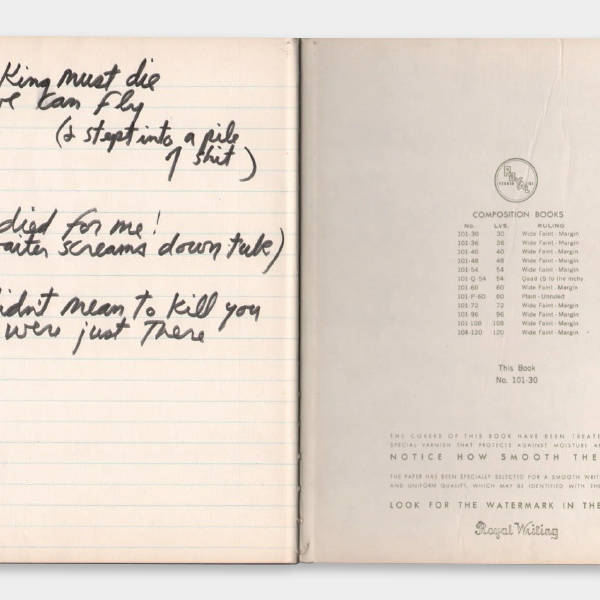 King must die
can fly
(& stept into a pile
of shit)
died for me!
aiter screams down tube)
idn't mean to kill you
were just There
ROYAL
VERNON
COMPOSITION BOOKS
No. LVS. RULING
101-30 30 Wide Faint - Margin
101-36 36 Wide Faint - Margin
101-40 40 Wide Faint - Margin
101-48 48 Wide Faint - Margin
101-54 54 Wide Faint - Margin
101-Q-54 54 Quad (5 to the inch)
101-60 60 Wide Faint - Margin
101-P-60 60 Plain - Unruled
101-72 72 Wide Faint - Margin
101-96 96 Wide Faint - Margin
101-108 108 Wide Faint - Margin
108-120 120 Wide Faint - Margin
This Book
No. 101-30
THE COVERS OF THIS BOOK HAVE BEEN TREATE
SPECIAL VARNISH THAT PROTECTS AGAINST MOISTURE AN
NOTICE HOW SMOOTH THE
THE PAPER HAS BEEN SPECIALLY SELECTED FOR A SMOOTH WRIT
AND UNIFORM QUALITY, WHICH MAY BE IDENTIFIED WITH THE
LOOK FOR THE WATERMARK IN THE
Royal Writing